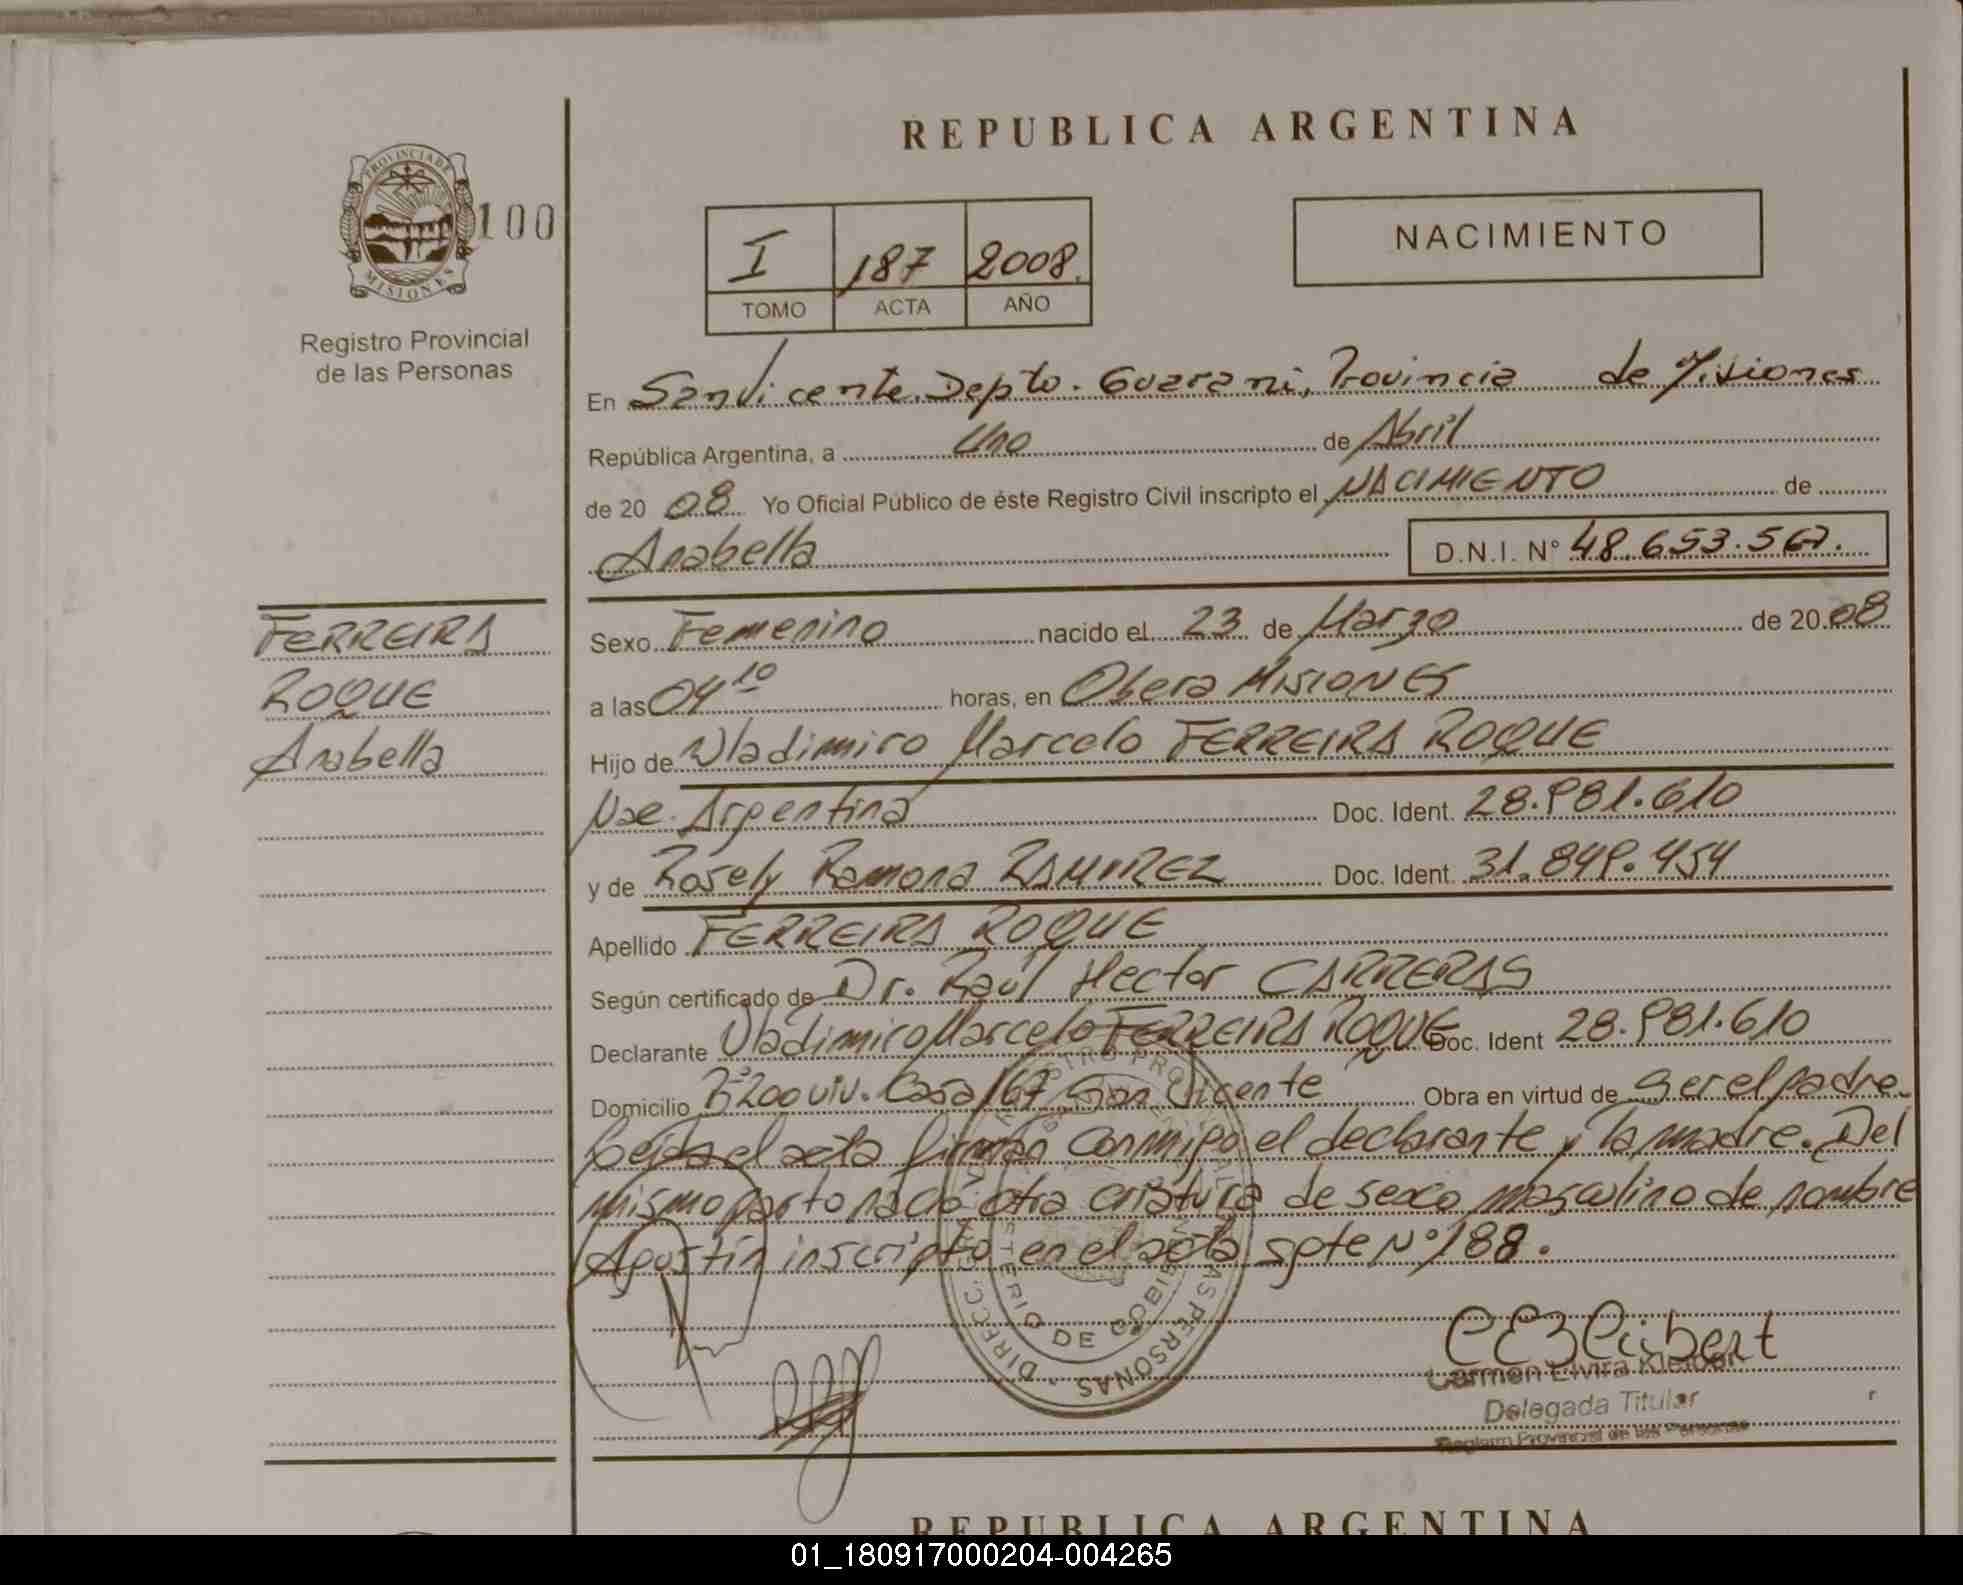 REPUBLICA ARGENTINA
PROVINCIA DE
MISIONES
100
Registro Provincial
de las Personas
I 187 2008.
TOMO ACTA AÑO
NACIMIENTO
En San Vicente. Depto. Guarani, Provincia de Misiones
República Argentina, a Uno de Abril
de 2008 Yo Oficial Público de éste Registro Civil inscripto el NACIMIENTO de
Anabella D.N.I. N° 48.653.567.
FERREIRA
ROQUE
Anabella
Sexo Femenino nacido el 23 de Marzo de 2008
a las 04 10 horas, en Obera MISIONES
Hijo de Wladimiro Marcelo FERREIRA ROQUE
Nac. Argentina Doc. Ident. 28.981.610
y de Rosely Ramona RAMIREZ Doc. Ident. 31.849.454
Apellido FERREIRA ROQUE
Según certificado de Dr. Raúl Hector CARRERAS
Declarante Wladimiro Marcelo FERREIRA ROQUE Doc. Ident 28.981.610
Domicilio Bº 200 viv. Casa 167 San Vicente Obra en virtud de ser el padre.
Leida el acta firman conmigo el declarante y la madre. Del
mismo parto nació otra criatura de sexo masculino de nombre
Agustín inscripto en el acta spte Nº 188.
DIRECC. PERSONAS
DE
Carmen Elvira Kleiber
Delegada Titular
Registro Provincial de las Personas
REPUBLICA ARGENTINA
01_180917000204-004265